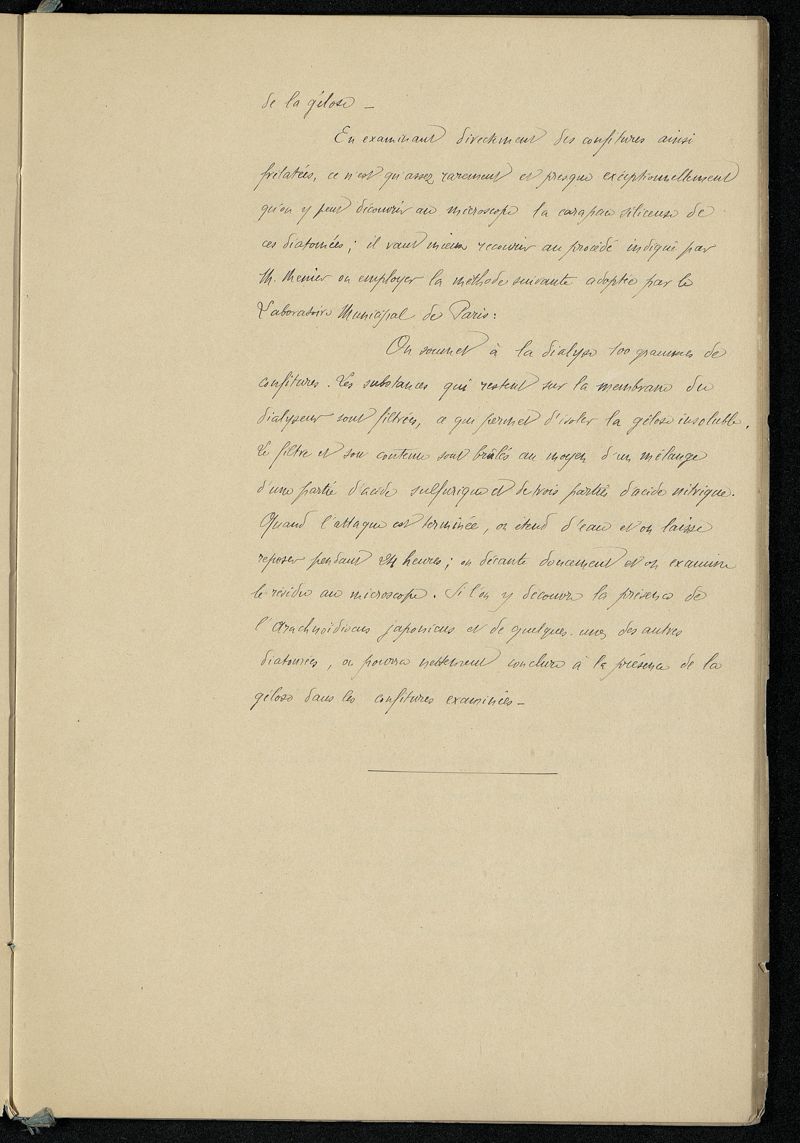 de la gélose _
En examinant directement des confitures ainsi
frelatées, ce n'est qu'assez rarement et presque exceptionnellement
qu'on y peut découvrir au microscope la carapace siliceuse de
ces diatomées; il vaut mieux recourir au procédé indiqué par
M. Menier ou employer la méthode suivante adoptée par le
Laboratoire Municipal de Paris:
On soumet à la dialyse 100 grammes de
confitures. Les substances qui restent sur la membrane du
dialyseur sont filtrées, ce qui permet d'isoler la gélose insoluble.
Le filtre et son contenu sont brûlés au moyen d'un mélange
d'une partie d'acide sulfurique et de trois parties d'acide nitrique.
Quand l'attaque est terminée, on étend d'eau et on laisse
reposer pendant 24 heures; on décante doucement et on examine
le résidu au microscope. Si l'on y découvre la présence de
l'Arachnoïdiscus japonicus et de quelques-unes des autres
diatomées, on pourra nettement conclure à la présence de la
gélose dans les confitures examinées _